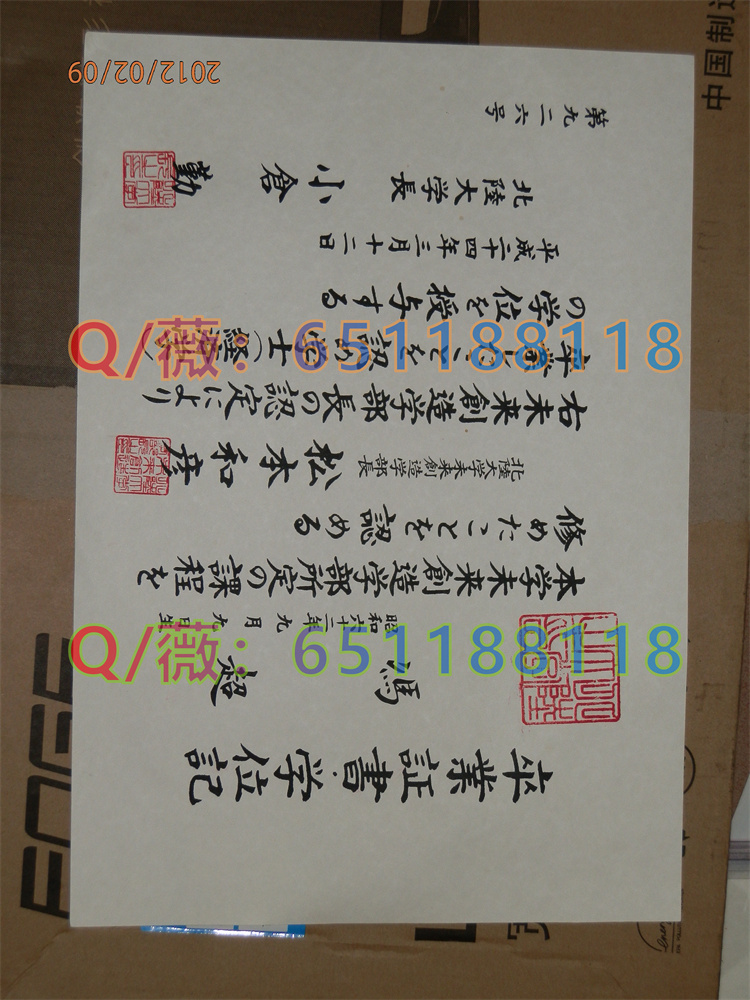 卒業証書・学位記
馮 超
昭和六十三年九月九日生
本学未来創造学部所定の課程を
修めたことを認める
北陸大学未来創造学部長
松本和彦
右未来創造学部長の認定により
卒業したことを認め学士(経営学)
の学位を授与する
平成二十四年三月十二日
北陸大学長 小倉 勤
第九二六号
2012/02/09
Q/薇:651188118
Q/薇:651188118
中国制造